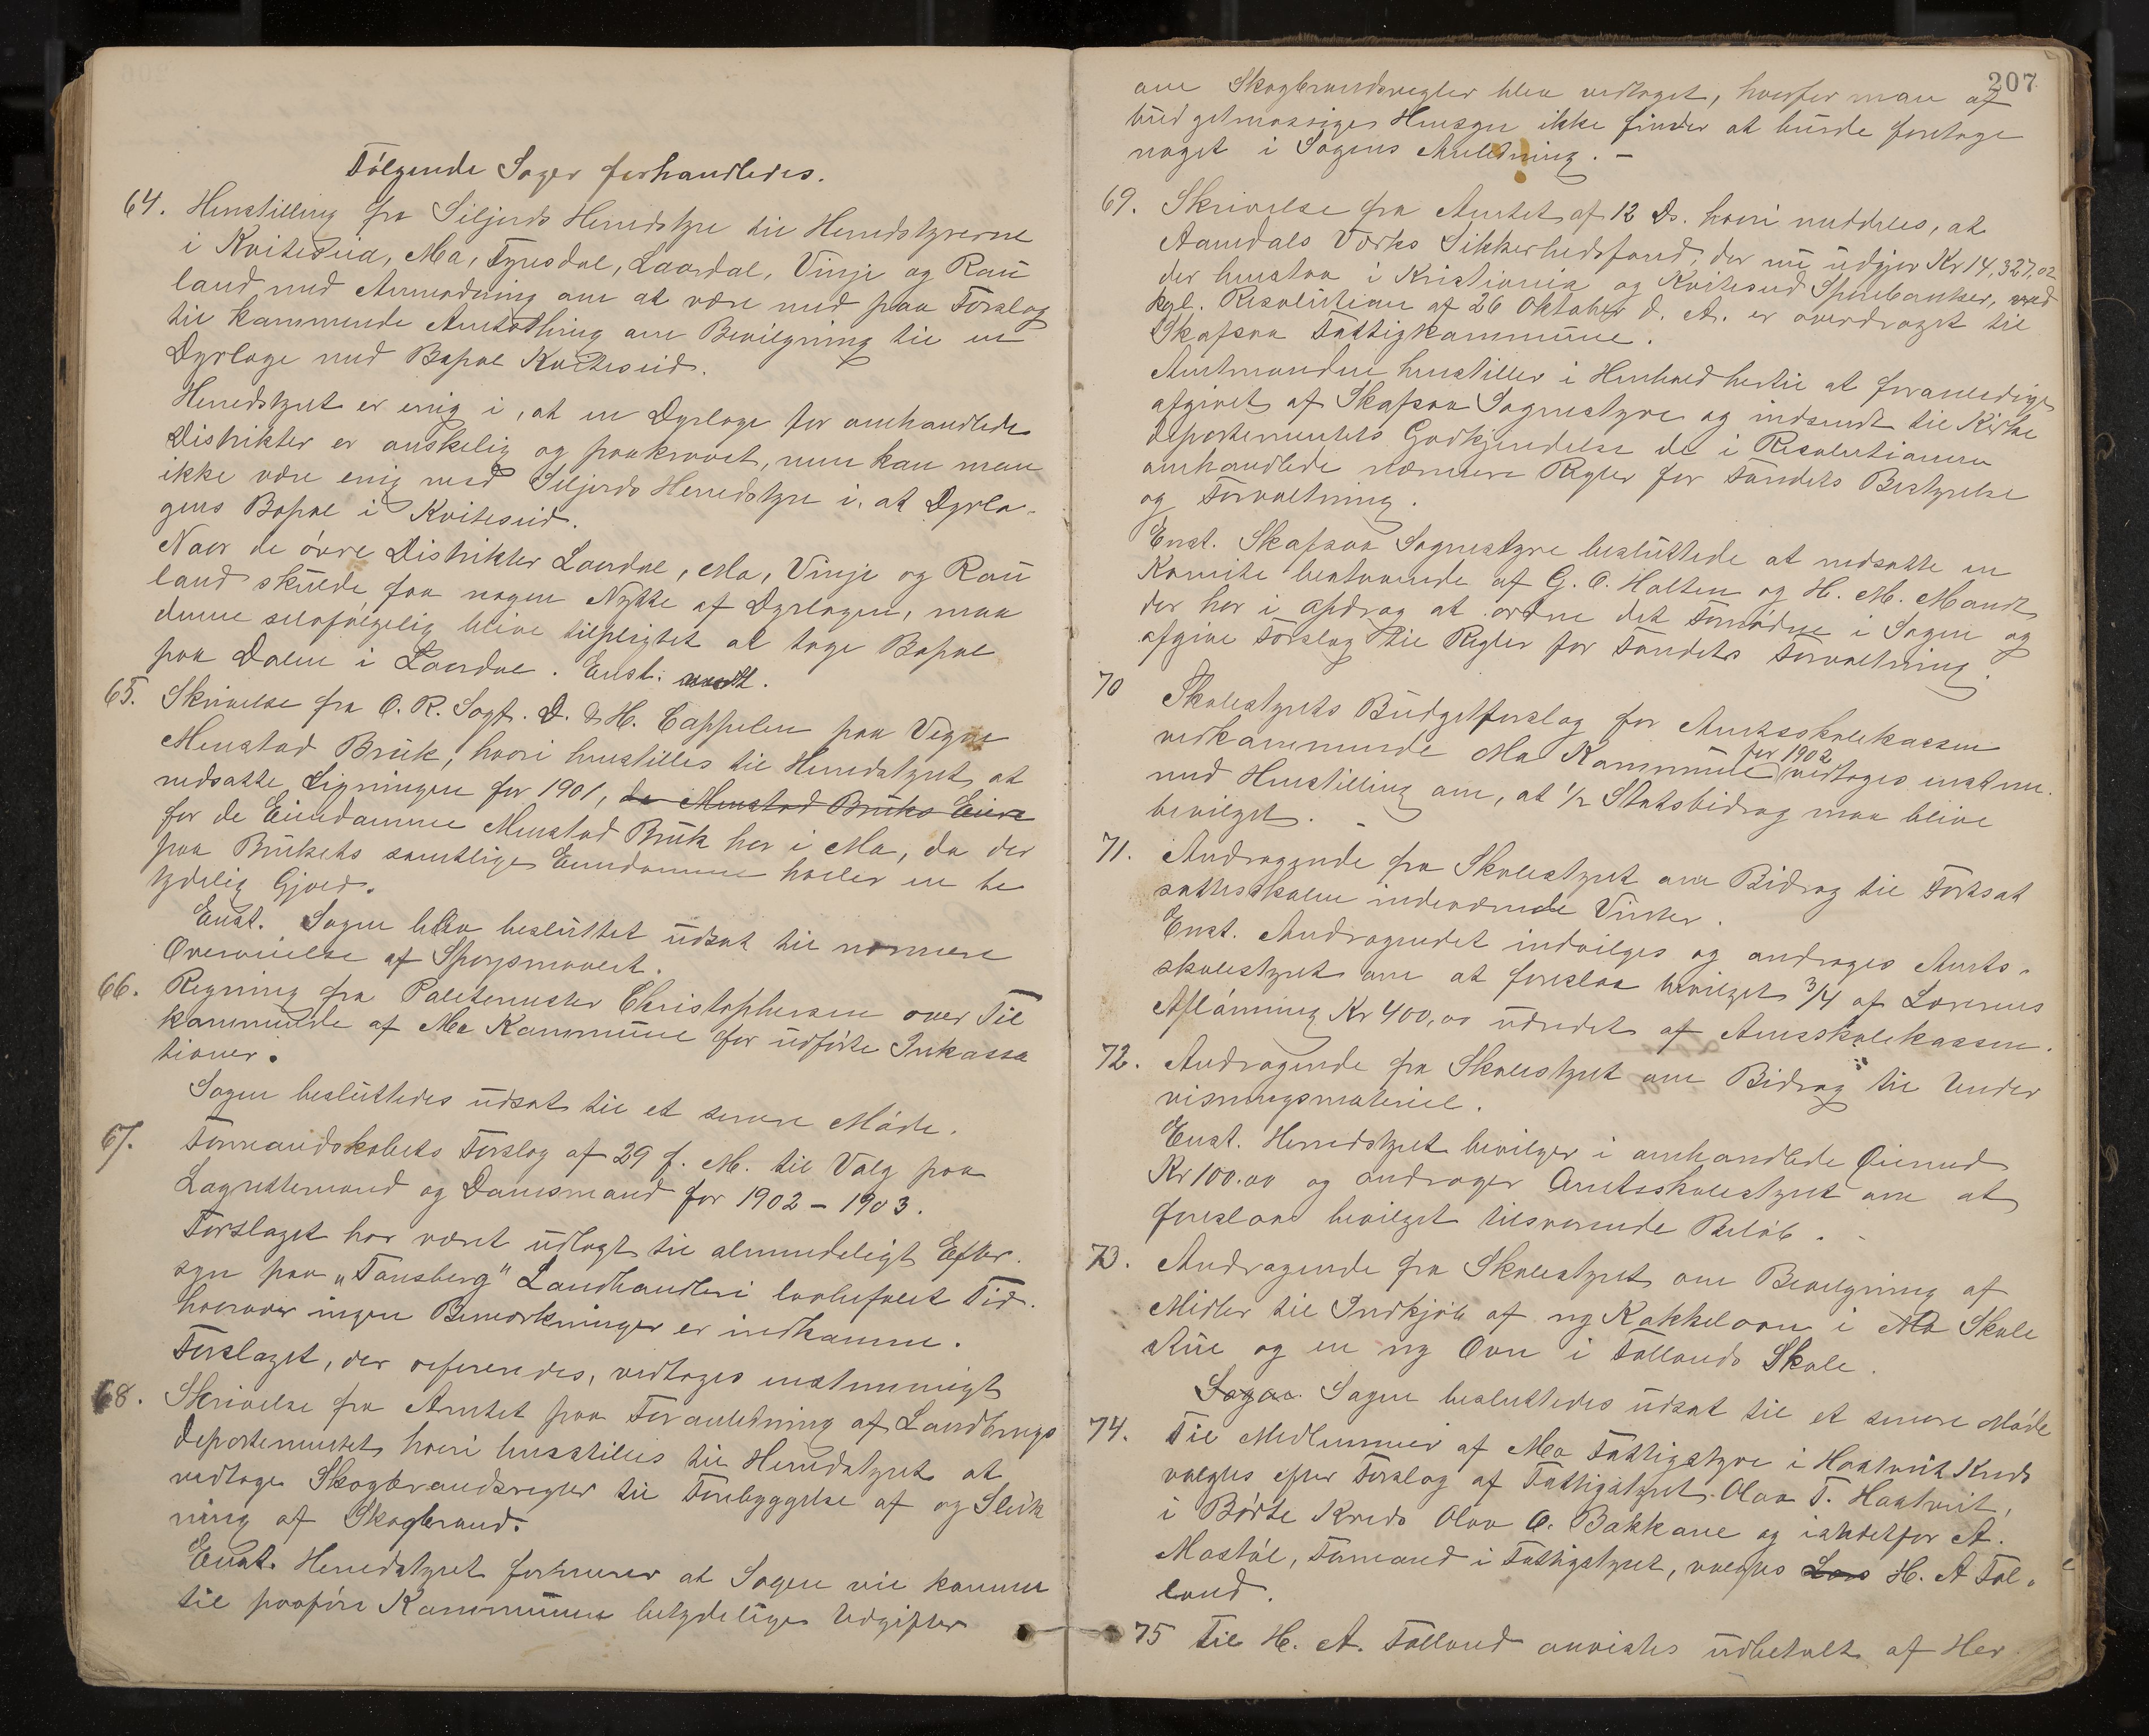 Følgende Sager forhandledes.
64. Henstilling fra Siljords Herredstyre til Herredstyrerne
i Kviteseid, Mo, Tyrisdal, Laardal, Vinje og Rau
land med Anmodning om at være med paa Forslag
til kommende Amtsthing om Bevilgning til en
Dyrlæge med Bopæl Kviteseid.
Herredstyret er enig i, at en Dyrlæge for omhandlede
Distrikter er ønskelig og paakrævet, men kan man
ikke være enig med Siljords Herredstyre i, at Dyrlæ-
gens Bopæl i Kviteseid.
Naar de øvre Distrikter Laardal, Mo, Vinje og Rau
land skulde faa nogen Nytte af Dyrlægen, maa
denne selvfølgelig blive tilpligtet at tage Bopæl
paa Dalen i Laardal. Enst. vedt.
65. Skrivelse fra O. R. Sagf. D. & H. Cappelen paa Vegne
Menstad Bruk, hvori henstilles til Herredstyret at
nedsætte Ligningen for 1901, da Menstad Bruks Eiere
for de Eiendomme Menstad Bruk har i Mo, da der
paa Brukets samtlige Eiendomme hviler en be
tydelig Gjæld.
Enst. Sagen blev besluttet udsat til nærmere
Overveielse af Spørgsmaalet.
66. Regning fra Politimester Christophersen over Til
kommende af Mo Kommune for udførte Inkassa
tioner.
Sagen besluttedes udsat til et senere Møde.
67. Formandskabets Forslag af 29 f. M. til Valg paa
Lagrettemænd og Domsmænd for 1902 - 1903.
Forslaget har været udlagt til almindeligt Efter-
syn paa "Tønsberg" Landhandleri lovbefalet Tid.
hvorover ingen Bemærkninger er indkomne.
Forslaget, der refereredes, vedtages enstemmigt
68. Skrivelse fra Amtet paa Foranledning af Landbrugs
departementet hvori henstilles til Herredstyret at
vedtage Skogbrandsregler til Forebyggelse af og Sluk
ning af Skogbrand.
Enst. Herredstyret formener at Sagen vil komme
til paaføre Kommunen betydelige Udgifter
207
om Skogbrandsregler blev vedtaget, hvorfor man af
budgetmæssige Hensyn ikke finder at burde foretage
noget i Sagens Anledning. -
69. Skrivelse fra Amtet af 12 Ds. hvori meddeles, at
Aamdals Værks Sikkerhedsfond, der nu udgjør Kr 14,327,02
der henstaar i Kristiania og Kviteseid Sparebanker, ved
kgl. Resolution af 26 Oktober d. A. er overdraget til
Skafsaa Fattigkommune.
Amtmanden henstiller i Henhold hertil at foranledige
afgivet af Skafsaa Sognestyre og indsendt til Kirke
departementets Godkjendelse de i Resolutionen
omhandlede nærmere Regler for Fondets Bestyrelse
og Forvaltning.
Enst. Skafsaa Sognestyre besluttede at nedsætte en
Komite bestaaende af G. O. Holten og H. M. Mandt
der har i Opdrag at ordne det Fornødne i Sagen og
afgive Forslag til Regler for Fondets Forvaltning.
70 Skolestyrets Budgetforslag for Amtsskolekassen
for 1902
vedkommende Mo Kommune vedtages enstem.
med Henstilling om, at 1/2 Statsbidrag maa blive
bevilget. -
71. Andragende fra Skolestyret om Bidrag til Fortsæt
tttelsesskolen indeværende Vinter.
Enst. Andragendet indvilges og andrages Amts-
skolestyret om at foreslaa bevilget 3/4 af Lærerens
Aflønning Kr 400,00 udredet af Amsskolekassen.
72. Andragende fra Skolestyret om Bidrag til Under
visningsmateriel.
Enst. Herredstyret bevilger i omhandlede Øiemed
Kr 100.00 og andrager Amtsskolestyret om at
foreslaa bevilget tilsvarende Beløb. -
73. Andragende fra Skolestyret om Bevilgning af
Midler til Indkjøb af ny Kakkelovn i Mo Skole
stue og en ny Ovn i Follands Skole.
Sagen Sagen besluttedes udsat til et senere Møde
74. Til Medlemmer af Mo Fattigstyre i Haatveit Kreds
valgtes efter Forslag af Fattigstyret Olav T. Haatveit,
i Børte Kreds Olav O. Bakkane og istedetfor A.
Mostøl, Formand i Fattigstyret, valgtes Lars H. A Fol-
land.
75 Til H. A. Folland anvistes udbetalt af Her